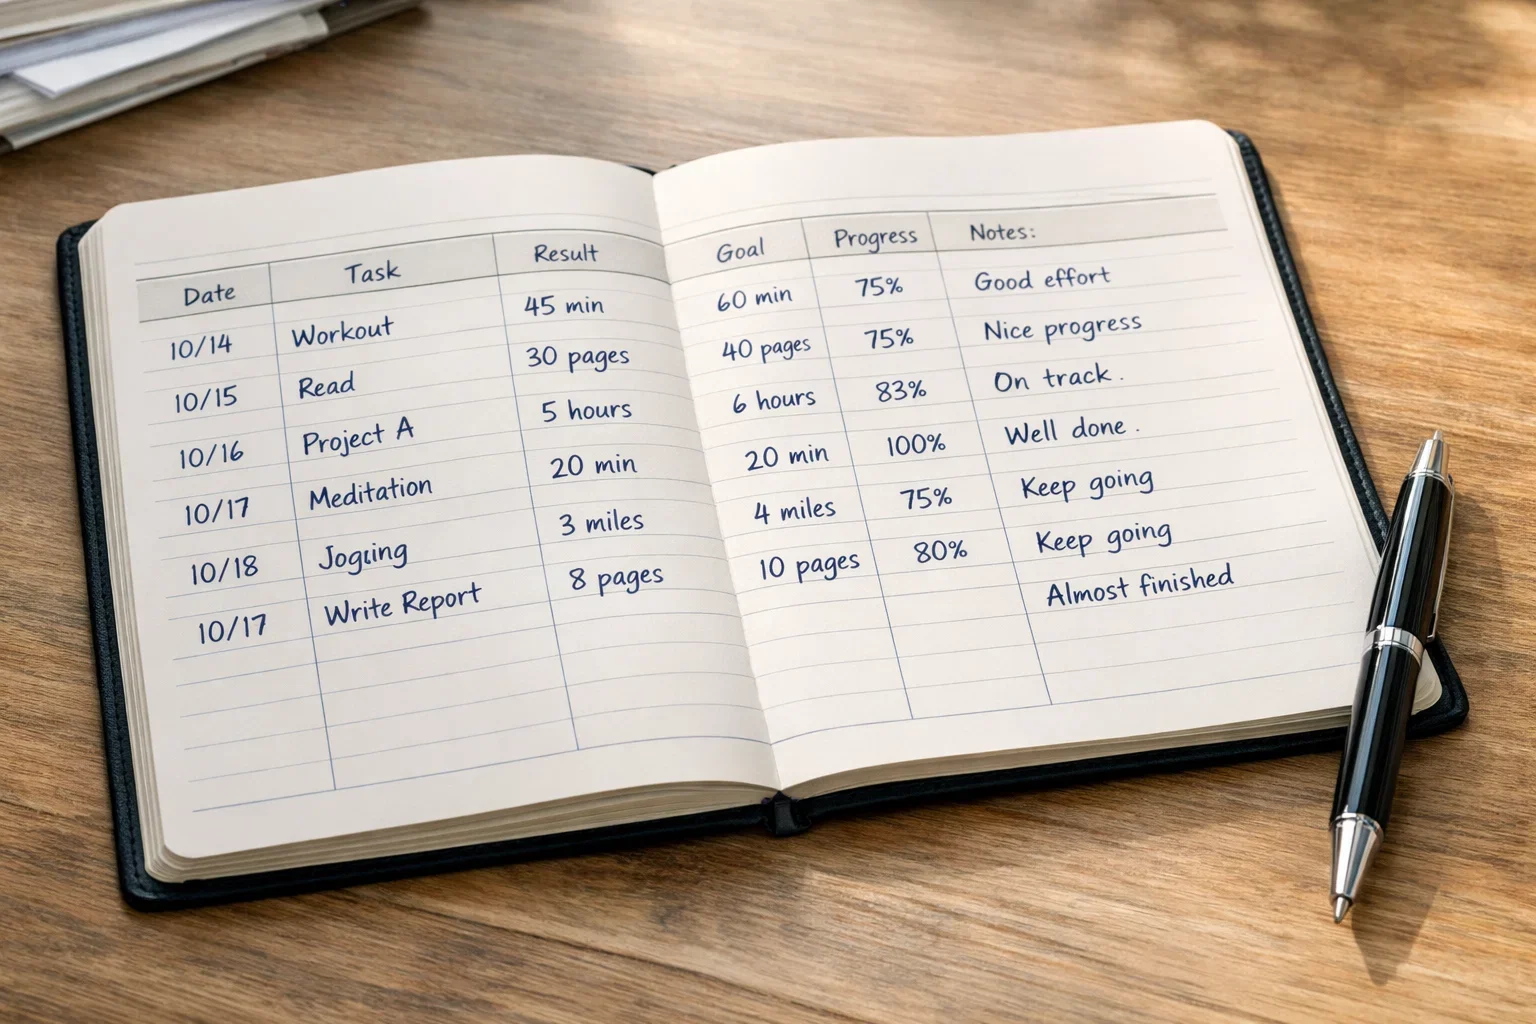 Date Task Result Goal Progress Notes:
10/14 Workout 45 min 60 min 75% Good effort
10/15 Read 30 pages 40 pages 75% Nice progress
10/16 Project A 5 hours 6 hours 83% On track.
10/17 Meditation 20 min 20 min 100% Well done.
10/18 Jogging 3 miles 4 miles 75% Keep going
10/17 Write Report 8 pages 10 pages 80% Keep going
Almost finished